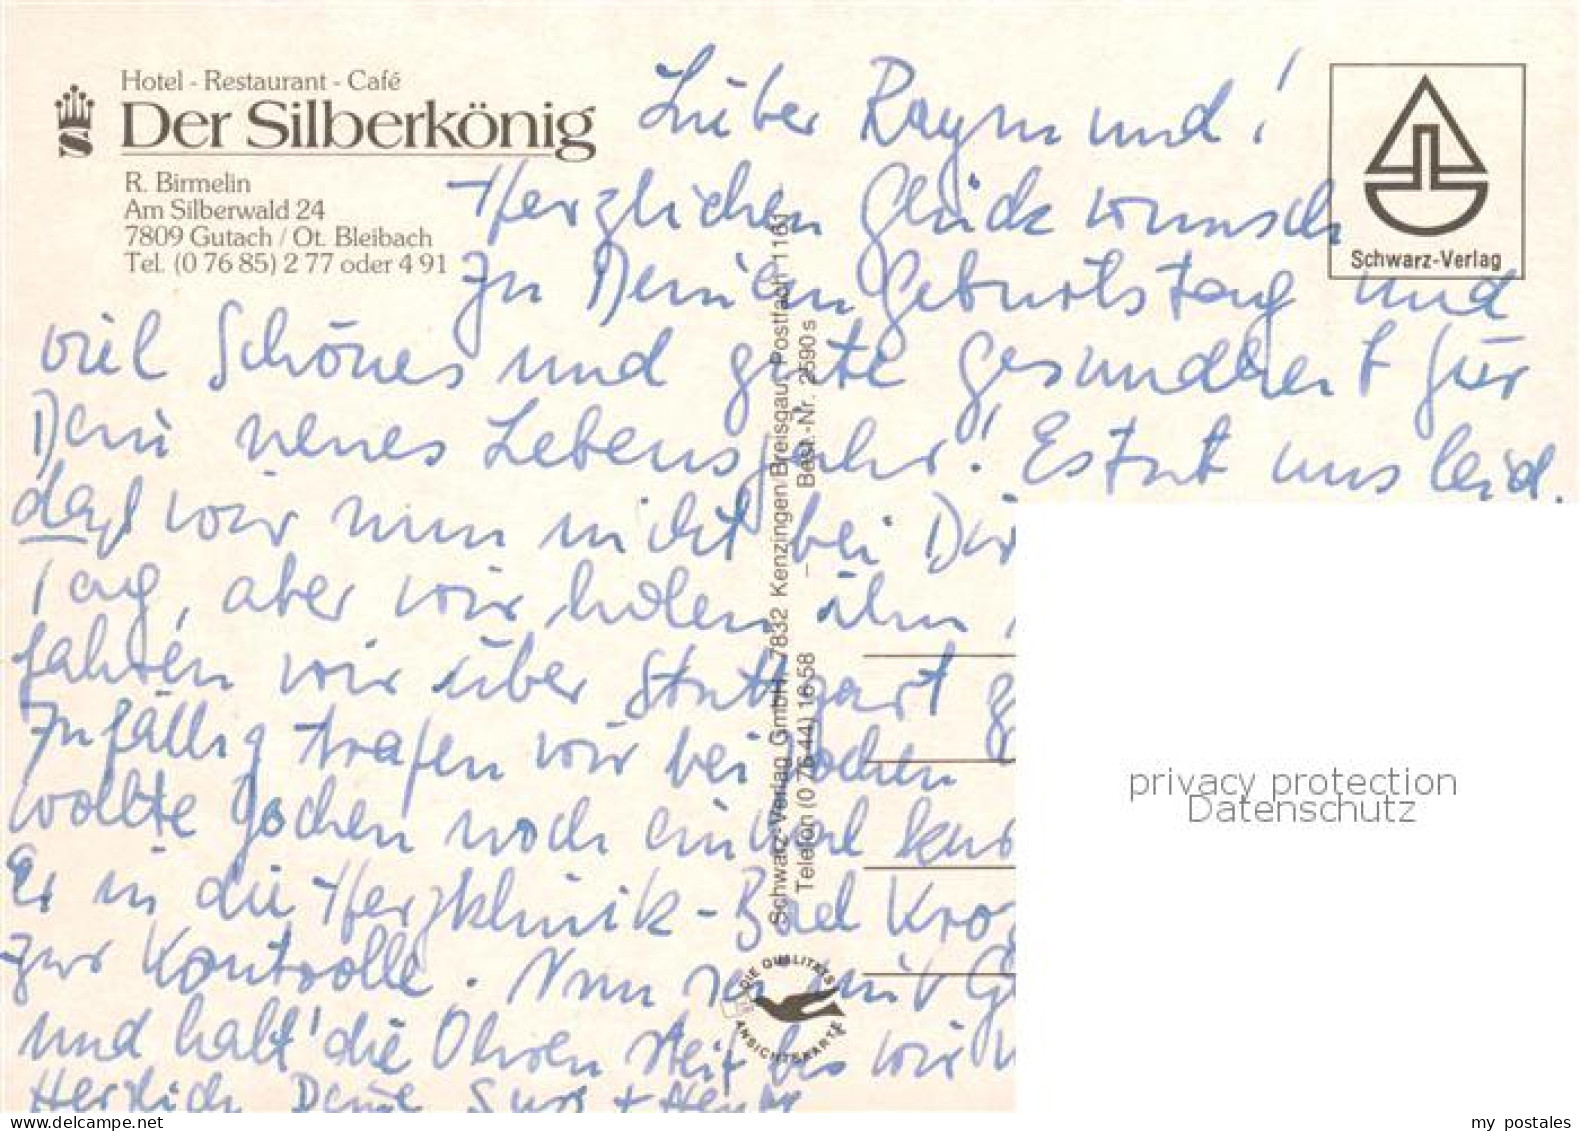 Hotel - Restaurant - Café
Der Silberkönig
R. Birmelin
Am Silberwald 24
7809 Gutach / Ot. Bleibach
Tel. (0 76 85) 2 77 oder 4 91
Schwarz-Verlag
Lieber Raymund!
Herzlichen Glückwunsch
zu Deinen Geburtstag und
viel Schönes und gute Gesundheit für
Dein neues Lebensjahr! Es tut uns leid.
daß wir nun nicht bei Dir
Tag, aber wir holen ihn
fahren wir über Stuttgart
Zufällig trafen wir bei Jochen
wollte Jochen noch einmal
Er in die Herzklinik - Bad Kroz
zur Kontrolle. Nun sei mit
und halt' die Ohren steif bis wir
Herzlich Deine
Schwarz-Verlag GmbH, 7832 Kenzingen/Breisgau, Postfach 1161
Telefon (0 76 44) 16 58 – Best.-Nr. 2590 s
DIE QUALITÄTS
ANSICHTSKARTE
privacy protection
Datenschutz
my postales